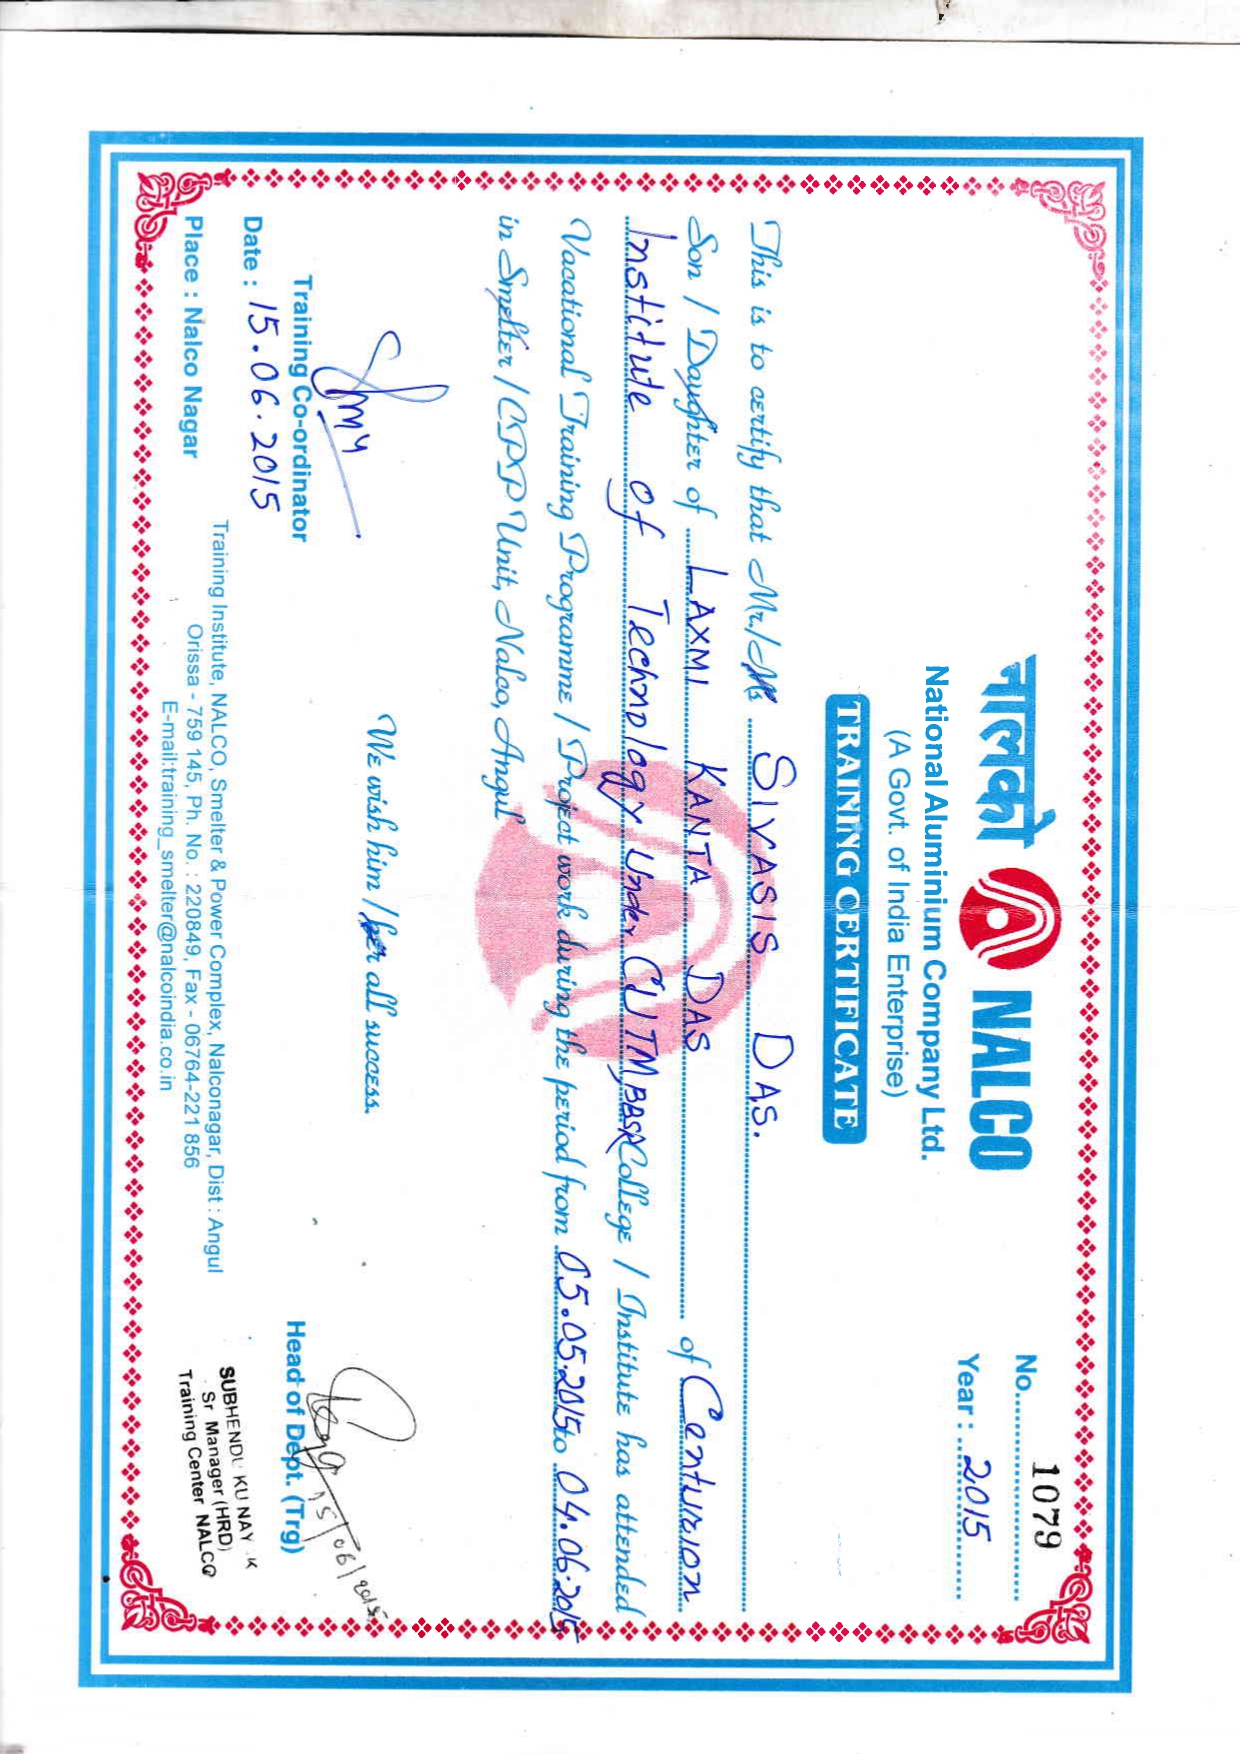 नालको NALCO
No. 1079
National Aluminium Company Ltd.
Year : 2015
(A Govt. of India Enterprise)
TRAINING CERTIFICATE
This is to certify that Mr./Ms SIVASIS DAS.
Son / Daughter of LAXMI KANTA DAS of Centurion
Institute of Technology Under CUTM, BBSR College / Institute has attended
Vacational Training Programme / Project work during the period from 05.05.2015 to 04.06.2015
in Smelter / CPP Unit, Nalco, Angul
We wish him / her all success.
15/06/2015
Training Co-ordinator
Head of Dept. (Trg)
Date : 15.06.2015
Place : Nalco Nagar
SUBHENDU KU NAY K
Sr. Manager (HRD)
Training Center NALCO
Training Institute, NALCO, Smelter & Power Complex, Nalconagar, Dist : Angul
Orissa - 759 145, Ph. No. : 220849, Fax - 06764-221 856
E-mail:training_smelter@nalcoindia.co.in